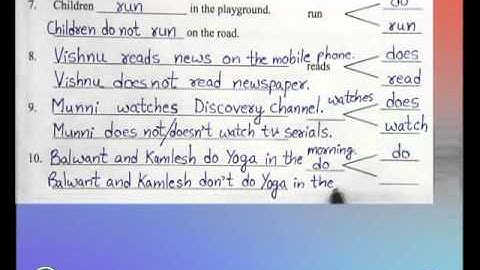 7. Children run in the playground. run do
Children do not run on the road. run
8. Vishnu reads news on the mobile phone. does
reads
Vishnu does not read newspaper. read
9. Munni watches Discovery channel. watches does
Munni does not/doesn't watch tv serials. watch
10. Balwant and Kamlesh do Yoga in the morning. do
do
Balwant and Kamlesh don't do Yoga in the